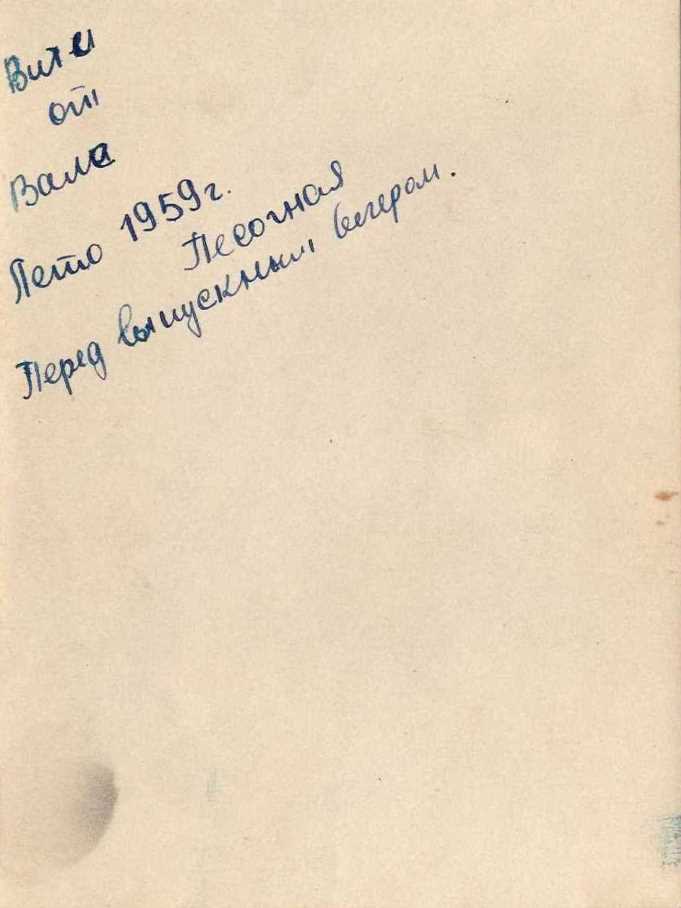 Вите
от
Вала
Лето 1959 г.
Песочная
Перед выпускным вечером.